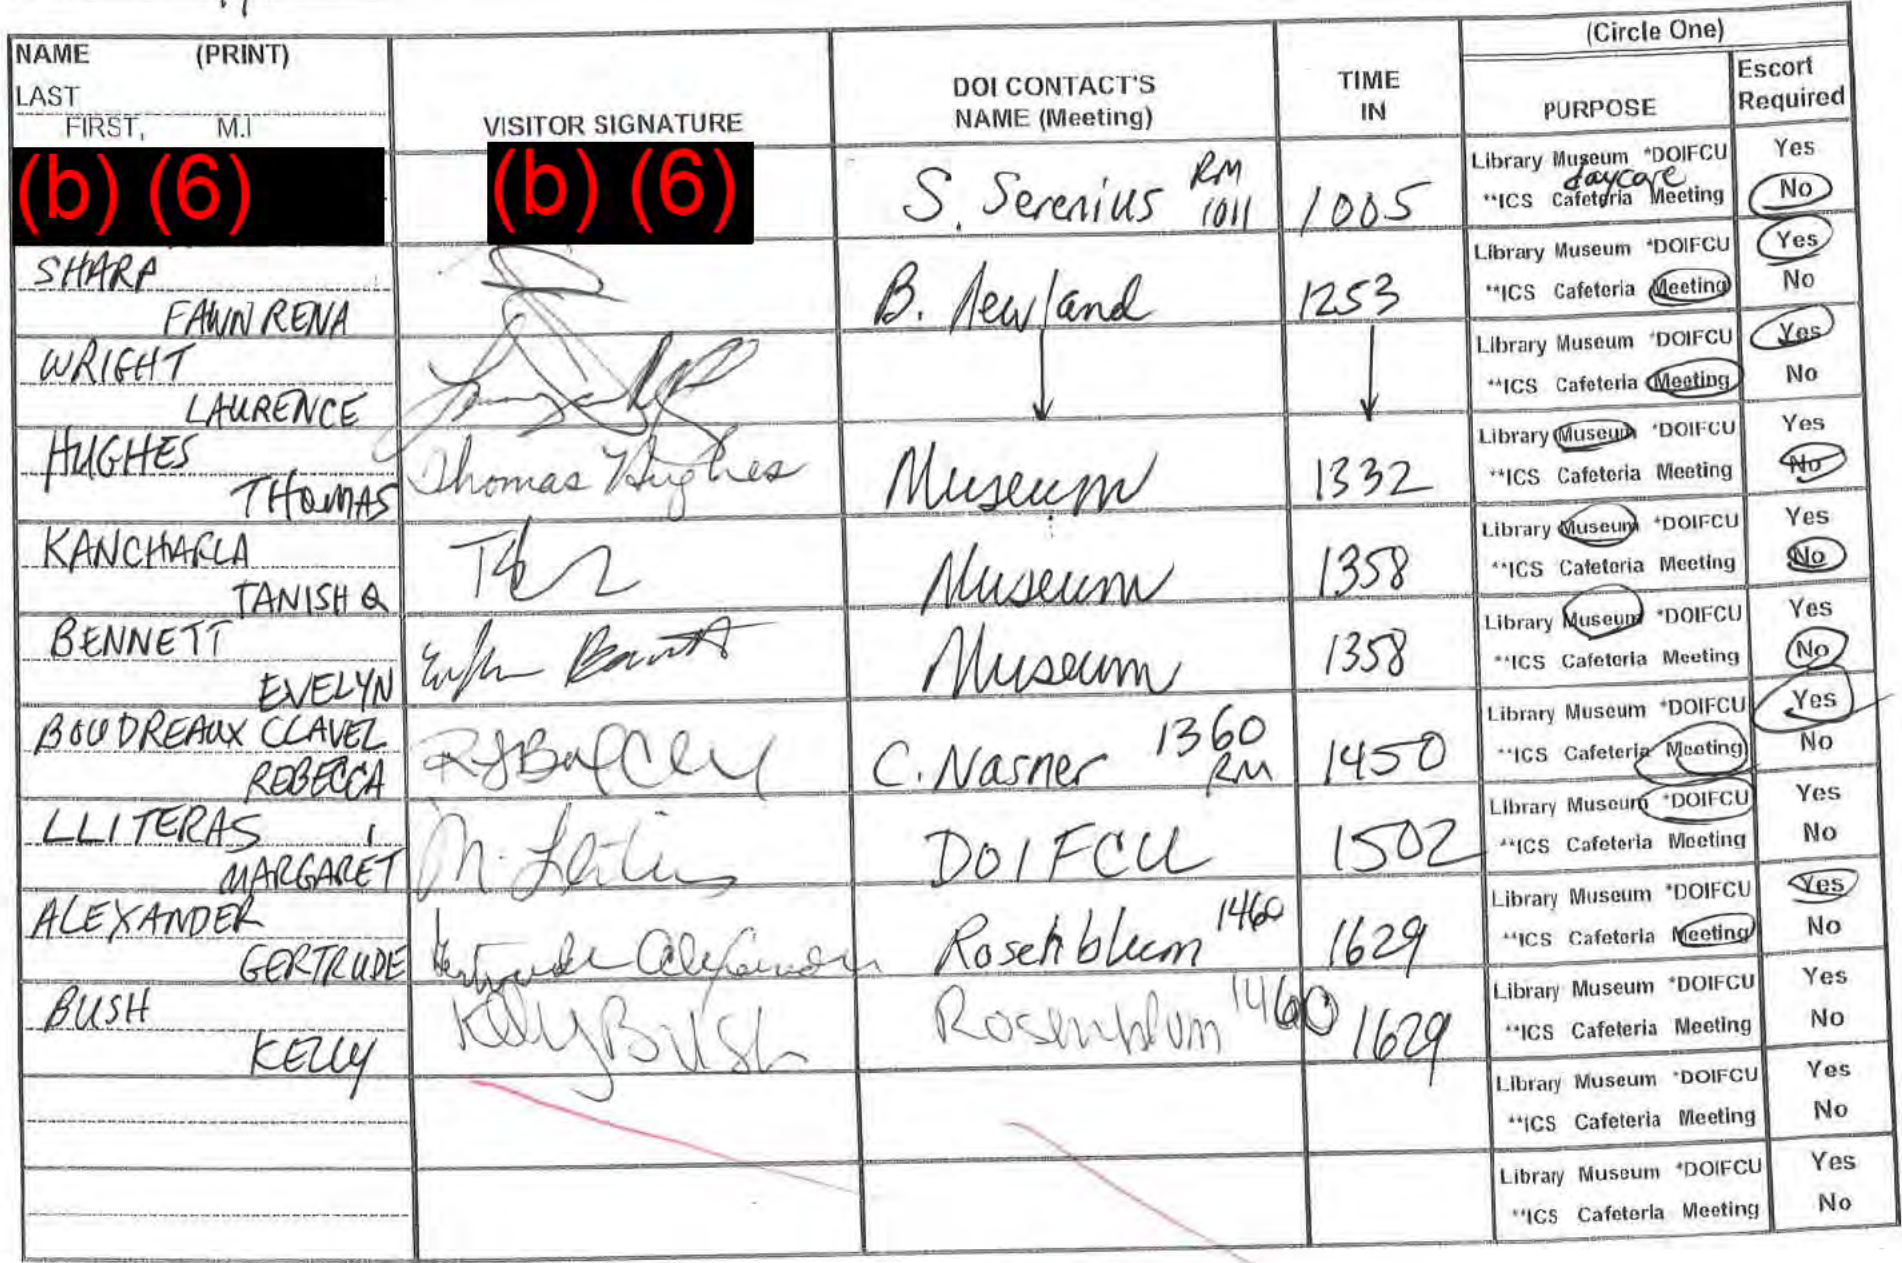 (Circle One)
NAME (PRINT)
LAST
FIRST, M.I
VISITOR SIGNATURE
DOI CONTACT'S
NAME (Meeting)
TIME
IN
PURPOSE
Escort
Required
(b) (6)
(b) (6)
S. Serenius RM
1011
1005
Library Museum *DOIFCU
daycare
**ICS Cafeteria Meeting
Yes
No
SHARP
FAWN RENA
B. Newland
1253
Library Museum *DOIFCU
**ICS Cafeteria Meeting
Yes
No
WRIGHT
LAURENCE
Library Museum *DOIFCU
**ICS Cafeteria Meeting
Yes
No
HUGHES
THOMAS
Thomas Hughes
Museum
1332
Library Museum *DOIFCU
**ICS Cafeteria Meeting
Yes
No
KANCHARLA
TANISHQ
Museum
1358
Library Museum *DOIFCU
**ICS Cafeteria Meeting
Yes
No
BENNETT
EVELYN
Museum
1358
Library Museum *DOIFCU
**ICS Cafeteria Meeting
Yes
No
BOUDREAUX CLAVEL
REBECCA
C. Nasner 1360
RM
1450
Library Museum *DOIFCU
**ICS Cafeteria Meeting
Yes
No
LLITERAS
MARGARET
DOIFCU
1502
Library Museum *DOIFCU
**ICS Cafeteria Meeting
Yes
No
ALEXANDER
GERTRUDE
Gertrude Alexander
Rosenblum 1460
1629
Library Museum *DOIFCU
**ICS Cafeteria Meeting
Yes
No
BUSH
KELLY
Kelly Bush
Rosenblum 1460
1629
Library Museum *DOIFCU
**ICS Cafeteria Meeting
Yes
No
Library Museum *DOIFCU
**ICS Cafeteria Meeting
Yes
No
Library Museum *DOIFCU
**ICS Cafeteria Meeting
Yes
No